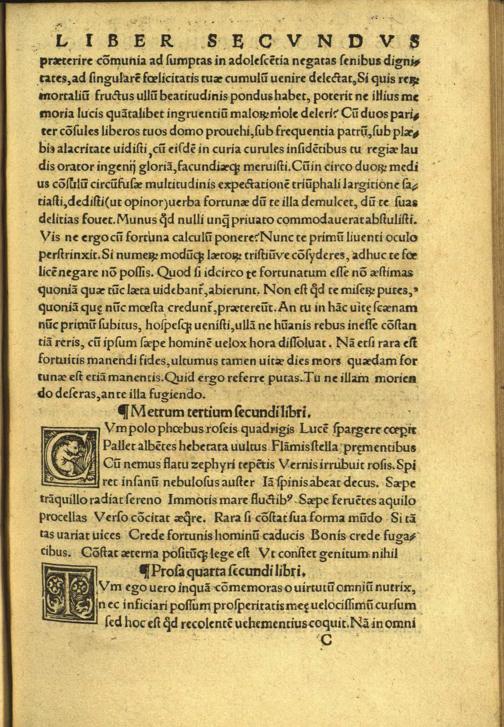 LIBER SECVNDVS
præterire cōmunia ad sumptas in adolescētia negatas senibus digni-
tates, ad singularē fœlicitatis tuæ cumulū uenire delectat, Si quis reꝝ
mortaliū fructus ullū beatitudinis pondus habet, poterit ne illius me
moria lucis quātalibet ingruentiū maloꝝ mole deleri? Cū duos pari-
ter cōsules liberos tuos domo prouehi, sub frequentia patrū, sub plæ-
bis alacritate uidisti, cū eisdē in curia curules insidētibus tu regiæ lau
dis orator ingenij gloriā, facundiæqꝫ meruisti. Cū in circo duoꝝ medi
us cōsulū circūfusæ multitudinis expectationē triūphali largitione sa-
tiasti, dedisti (ut opinor) uerba fortunæ dū te illa demulcet, dū te suas
delitias fouet. Munus qđ nulli unꝗ priuato commodauerat abstulisti.
Vis ne ergo cū fortuna calculū ponere? Nunc te primū liuenti oculo
perstrinxit. Si numeꝝ modūqꝫ lætoꝝ tristiūve cōsyderes, adhuc te fœ
licē negare nō possis. Quod si idcirco te fortunatum esse nō æstimas
quoniā quæ tūc læta uidebant᷑, abierunt. Non est qđ te miseꝝ putes,
quoniā quę nūc mœsta credunt᷑, prætereūt. An tu in hāc uitę scænam
nūc primū subitus, hospesqꝫ uenisti, ullā ne hūanis rebus inesse cōstan
tiā reris, cū ipsum sæpe hominē uelox hora dissoluat. Nā etsi rara est
fortuitis manendi fides, ultumus tamen uitæ dies mors quædam for
tunæ est etiā manentis. Quid ergo referre putas. Tu ne illam morien
do deseras, an te illa fugiendo.
¶ Metrum tertium secundi libri.
CVm polo phœbus roseis quadrigis Lucē spargere cœpit
Pallet albētes hebetata uultus Flāmis stella pręmentibus
Cū nemus flatu zephyri tepētis Vernis irrubuit rosis. Spi
ret insanū nebulosus auster Iā spinis abeat decus. Sæpe
trāquillo radiat sereno Immotis mare fluctibꝰ. Sæpe feruētes aquilo
procellas Verso cōcitat æqre. Rara si cōstat sua forma mūdo Si tā
tas uariat uices Crede fortunis hominū caducis Bonis crede fuga-
cibus. Cōstat æterna positūqꝫ lege est Vt constet genitum nihil
¶ Prosa quarta secundi libri.
TVm ego uero inquā cōmemoras o uirtutū omniū nutrix,
nec inficiari possum prosperitatis meę uelocissimū cursum
sed hoc est qđ recolentē uehementius coquit. Nā in omni
C